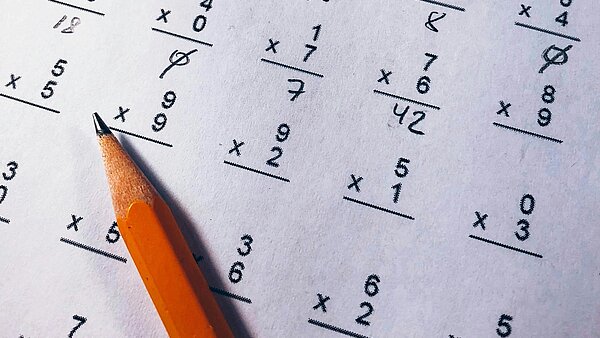 8
x 4
0
18
4
x 0
0
1
x 7
7
7
x 6
42
8
x 9
5
x 5
9
x 9
9
x 2
5
x 1
0
x 3
3
0
x 5
3
6
6
x 2
5
7